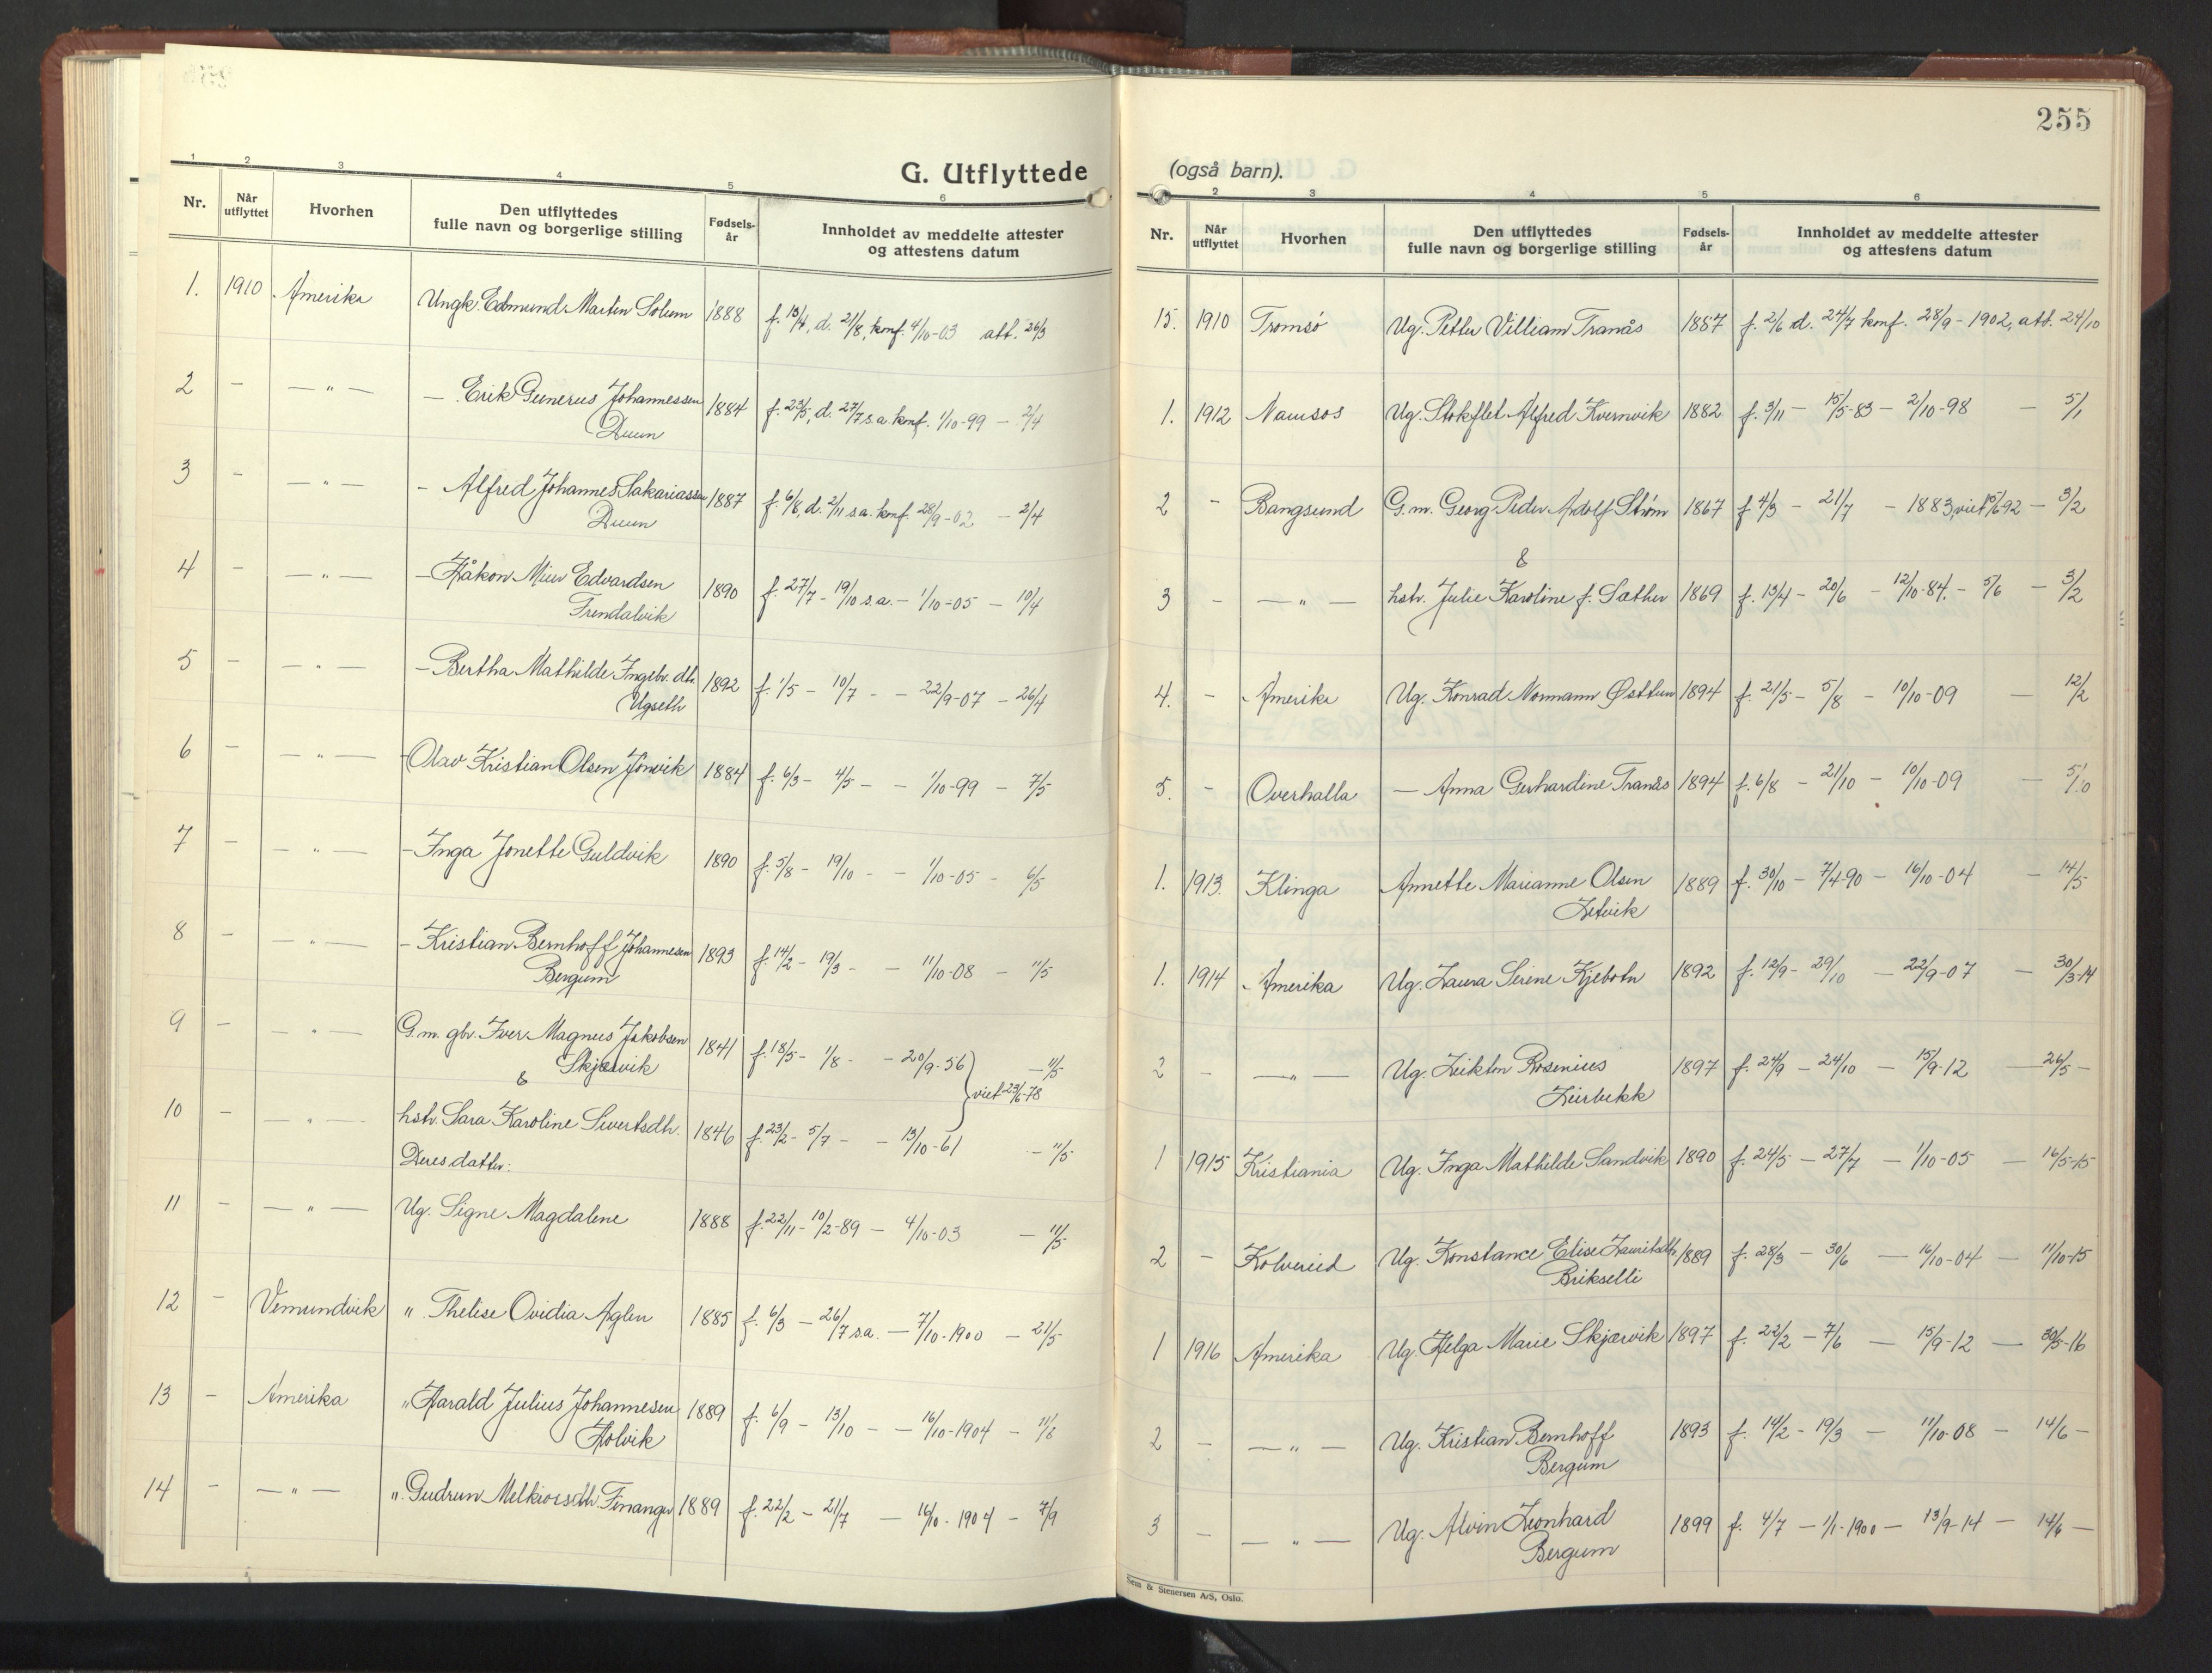 255
G. Utflyttede
1 2 3 4 5 6
Nr. Når utflyttet Hvorhen Den utflyttedes fulle navn og borgerlige stilling Fødsels-år Innholdet av meddelte attester og attestens datum
1. 1910 Amerika Ungk. Edmund Martin Solum 1888 f. 13/4, d. 21/8, konf. 4/10-03 att. 26/3
2 - — " — — Erik Gunerus Johannessen 1884 f. 23/5, d. 27/7 s.a. konf. 1/10-99 — 2/4
Duun
3 - — " — - Alfred Johannes Sakariassen 1887 f. 6/8, d. 2/11 s.a. konf. 28/9-02 — 2/4
Duun
4 - — " — - Håkon Edvardsen 1890 f. 27/7 - 19/10 s.a. - 1/10-05 - 10/4
5 - — " — - Bertha Mathilde Ingebr.dtr. 1892 f. 1/5 - 10/7 - - 22/9-07 - 26/4
Ugseth
6 - — " — - Olav Kristian Olsen Jønvik 1884 f. 6/3 - 4/5 - - 1/10-99 - 7/5
7 - — " — - Inga Jonette Guldvik 1890 f. 5/8 - 19/10 - - 1/10-05 - 6/5
8 - — " — - Kristian Bernhoff Johannesen 1893 f. 14/2 - 19/3 - - 11/10-08 - 11/5
Bergum
9 - — " — G.m. gbr. Iver Magnus Jakobsen 1841 f. 18/5 - 1/8 - - 20/9-56 - 11/5
Skjærvik
& viet 23/6-78
10 - — " — hstr. Sara Karoline Sivertsdtr. 1846 f. 23/2 - 5/7 - - 13/10-61 - 11/5
Deres datter:
11 - — " — Ug. Signe Magdalene 1888 f. 22/11 - 10/2-89 - 4/10-03 - 11/5
12 - Vemundvik " Thelise Ovidia Aglen 1885 f. 6/3 - 26/7 s.a. - 7/10-1900 - 21/5
13 - Amerika " Harald Julius Johannesen 1889 f. 6/9 - 13/10 - - 16/10-1904 - 11/6
Holvik
14 - — " — " Gudrun Melkiorsdtr. Finanger 1889 f. 22/2 - 21/7 - 16/10-1904 - 7/9
(også barn).
2 3 4 5 6
Nr. Når utflyttet Hvorhen Den utflyttedes fulle navn og borgerlige stilling Fødsels-år Innholdet av meddelte attester og attestens datum
15. 1910 Tromsø Ug. Petter Villiam Tranås 1887 f. 2/6 d. 24/7 konf. 28/9-1902, att. 24/10
1. 1912 Namsos Ug. Stokflet Alfred Kvernvik 1882 f. 3/11 - 15/5-83 - 2/10-98 - 5/1
2 - Bangsund G.m. Georg Peder Adolf Strøm 1867 f 4/3 - 21/7 - 1883, viet 15/6 92 - 3/2
&
3 - — " — hstr. Julie Karoline f. Sæther 1869 f. 13/4 - 20/6 - 12/10-84. - 5/6 - 3/2
4. - Amerika Ug. Konrad Normann Østtun 1894 f. 21/5 - 5/8 - 10/10-09 - 12/2
5. - Overhalla — Anna Gerhardine Tranås 1894 f. 6/8 - 21/10 - 10/10-09 - 5/10
1. 1913. Klinga Annette Marianne Olsen 1889 f. 30/10 - 7/4-90 - 16/10-04 - 14/5
1. 1914 Amerika Ug. Laura Sirene Kjebotn 1892 f. 12/9 - 29/10 - 22/9-07 - 30/3-14
2 - — " — Ug. Rosenius 1897 f. 24/9 - 24/10 - 15/9-12 - 26/5 -
Leirbekk
1 1915 Kristiania Ug. Inga Mathilde Sandvik 1890 f. 24/5 - 27/7 - 1/10-05 - 16/5-15
2 - Kolvereid Ug. Konstance Elise Lauritsdtr. 1889 f. 28/3 - 30/6 - 16/10-04 - 11/10-15
Brikselli
1 1916 Amerika Ug. Helga Marie Skjærvik 1897 f. 22/2 - 7/6 - 15/9-12 - 30/5-16
2 - — " — Ug. Kristian Bernhoff 1893 f. 14/2 - 19/3 - 11/10-08 - 14/6 -
Bergum
3 - — " — Ug. Alvin Leonhard 1899 f. 4/7 - 1/1-1900 - 13/9-14 - 14/6 -
Bergum
Sem & Stenersen A/S, Oslo.